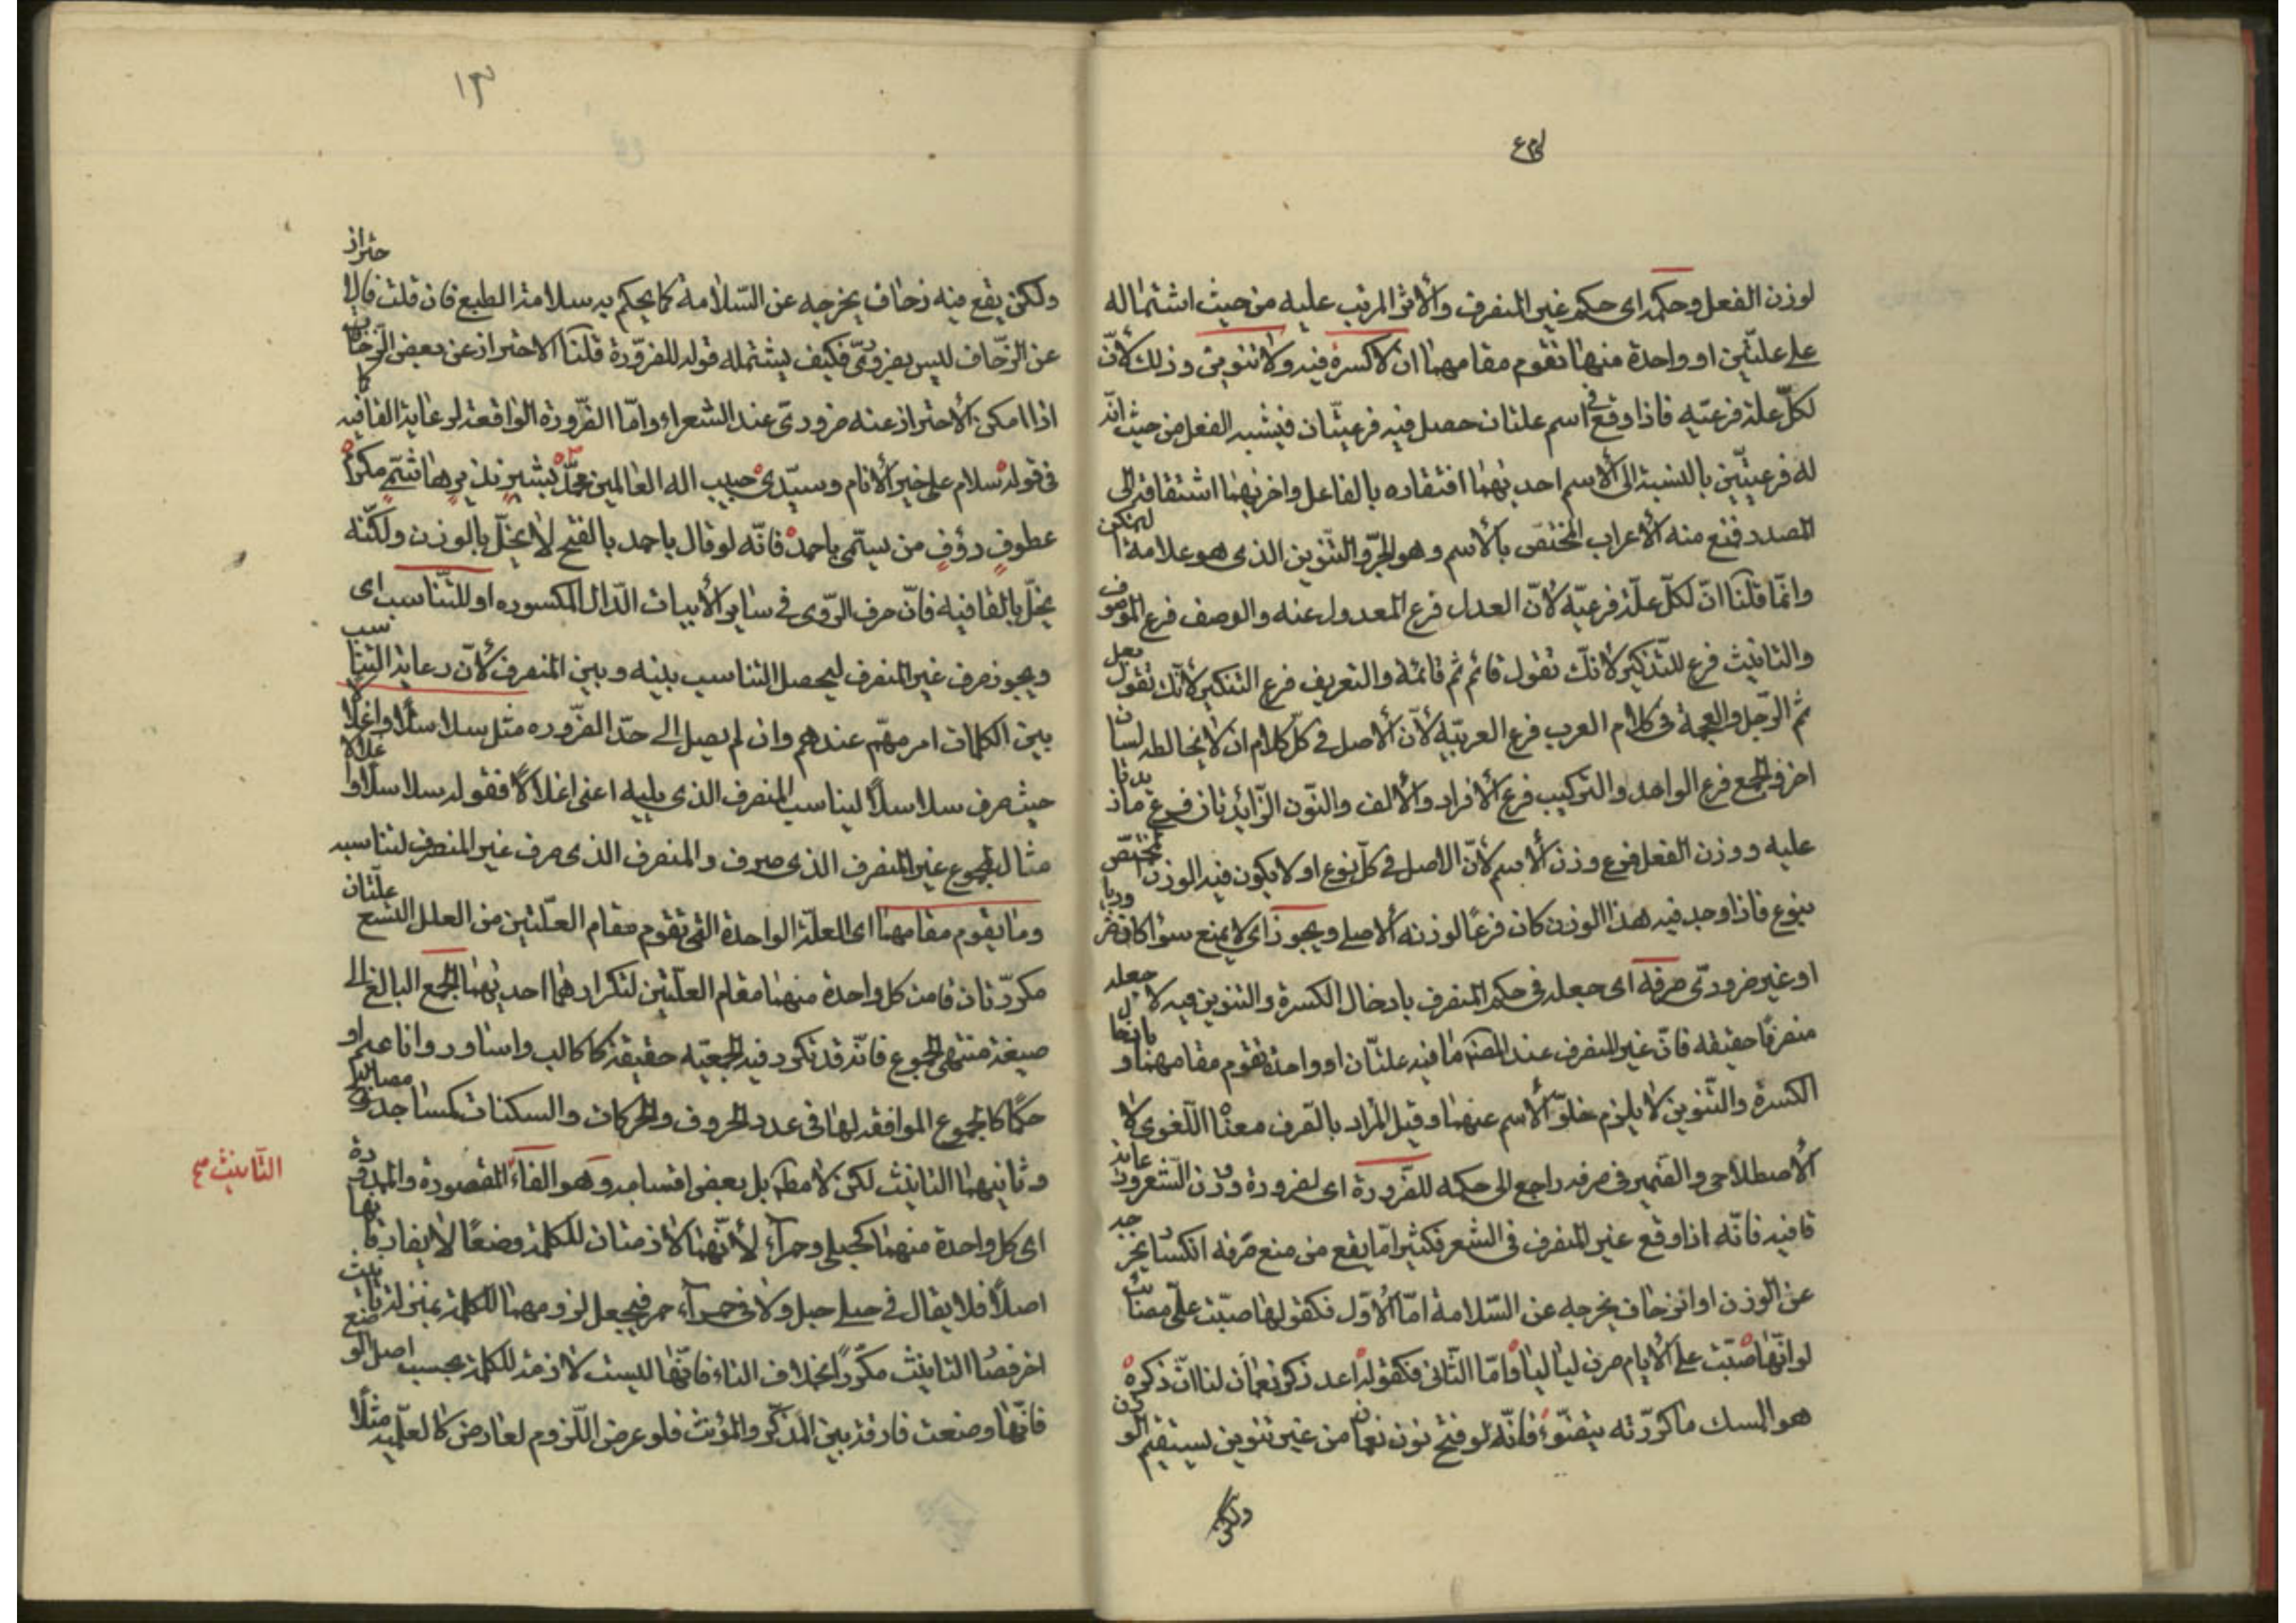 لوزن الفعل وحكمه اى حكم غير المنصرف والأثر المرتب عليه من حيث اشتماله
على علتين او واحدة منهما تقوم مقامهما ان لا كسرة فيه ولا تنوين وذلك لأنّ
لكلّ علة فرعيّه فاذا وقع فى اسم علتان حصل فيه فرعيتان فيشبه الفعل من حيث انّه
له فرعيتين بالنسبة الى الأسم احديهما افتقاره بالفاعل واخريهما اشتقاقه الى
المصدر فمنع منه الأعراب المختصّ بالأسم وهو الجرّ والتنوين الذى هو علامة التمكن
وانّما قلنا انّ لكلّ علّة فرعيّه لأنّ العدل فرع المعدول عنه والوصف فرع الموصوف
والتانيث فرع للتذكير لانك تقول قائم ثم قائمة والتعريف فرع التنكير لأنك تقول رجل
ثم الرّجل والعجمة فى كلام العرب فرع العربيّه لأنّ الأصل فى كلّ كلام ان لا يخالطه لسان
اخر والجمع فرع الواحد والتركيب فرع الأفراد والألف والنّون الزّايدتان فرع ما زيدتا
عليه ووزن الفعل فرع وزن الأسم لأنّ الاصل فى كلّ نوع ان لا يكون فيه الوزن المختصّ
بنوع فاذا وجد فيه هذا الوزن كان فرعًا لوزنه الأصلى ويجوز اى لا يمتنع سواء كان ضروريا
او غير ضرورىّ صرفه اى جعله فى حكم المنصرف بادخال الكسرة والتنوين فيه لا جعله
منصرفًا حقيقه فانّ غير المنصرف عند المصنف ما فيه علتان او واحدة تقوم مقامهما وبادخال
الكسرة والتّنوين لا يلزم خلوّ الأسم عنهما وقيل المراد بالصّرف معناه اللّغوى لا
الأصطلاحى والضّمير فى صرفه راجع الى حكمه للضّرورة اى لضرورة وزن الشّعر ورعاية
قافيه فانّه اذا وقع غير المنصرف فى الشعر فكثيرًا مّا يقع من منع صرفه انكسار يخرجه
عن الوزن او انزحاف يخرجه عن السّلامة امّا الأوّل فكقولها صبّت علىّ مصائب
لو انّها صبّت على الأيام صرن لياليا وامّا الثّانى فكقوله اعد ذكر نعمان لنا انّ ذكره
هو المسك ما كرّرته يتضوّع فانّه لو فتح نون نعمان من غير تنوين يستقيم الوزن
ولكن
١٣
ولكن يقع منه زحاف يخرجه عن السّلامة كما يحكم به سلامة الطبع فان قلت فالاحتراز
عن الزّحاف ليس بضرورىّ فكيف يشتمله قوله للضّرورة قلنا الاحتراز عن بعض الزّحافات
اذا امكن الأحتراز عنه ضرورىّ عند الشعراء وامّا الضّرورة الواقعة لرعاية القافيه كما
فى قوله سلام على خير الأنام وسيّدى حبيب اله العالمين محمّد بشير نذير هاشمىّ مكرم
عطوف رؤف من يسمّى باحمد فانّه لو قال باحمد بالفتح لا يخلّ بالوزن ولكنّه
يخلّ بالقافيه فانّ حرف الرّوى فى ساير الأبيات الدّال المكسوره او للتّناسب اى
ويجوز صرف غير المنصرف ليحصل التناسب بينه وبين المنصرف لأنّ رعاية التناسب
بين الكلمات امر مهمّ عندهم وان لم يصل الى حدّ الضّروره مثل سلاسلًا واغلالا
حيث صرف سلاسلًا ليناسب المنصرف الذى يليه اعنى اغلالًا فقوله سلاسلًا واغلالًا
مثال لمجموع غير المنصرف الذى صرف والمنصرف الذى صرف غير المنصرف لتناسبه
وما يقوم مقامهما اى العلّة الواحدة التى تقوم مقام العلّتين من العلل التسع علّتان
مكرّرتان قامت كل واحدة منهما مقام العلّتين لتكرارهما احديهما الجمع البالغ الى
صيغة منتهى الجموع فانّه قد تكرر فيه الجمعيّه حقيقة كاكالب واساور واناعيم او
حكمًا كالجموع الموافقة لها فى عدد الحروف والحركات والسكنات كمساجد ومصابيح
وثانيهما التانيث لكن لا مطلقا بل بعض اقسامه وهو الفاء المقصورة والممدودة
التأنيث صح
اى كل واحدة منهما كحبلى وحمرآء لأنّهما لازمتان للكلمة وضعًا لا يفارقانها
اصلًا فلا يقال فى حبلى حبل ولا فى حمرآء حمر فيجعل لزومهما للكلمة بمنزلة تانيث
اخر فصار التانيث مكرّرًا بخلاف التاء فانّها ليست لازمة للكلمة بحسب اصل الوضع
فانّها وضعت فارقة بين المذكّر والمؤنث فلو عرض اللّزوم لعارض كالعلميّه مثلًا